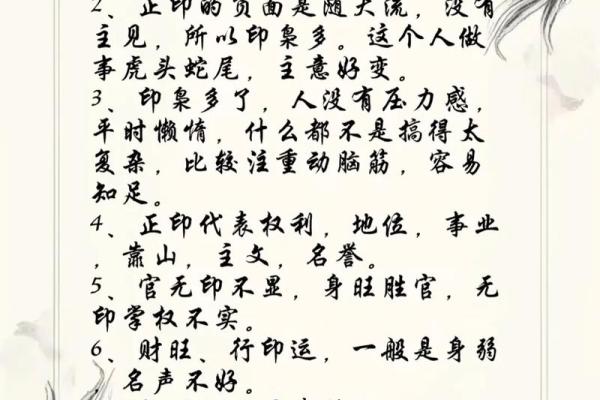 2、正印的负面是随大流，没有
主见，所以印枭多。这个人做
事虎头蛇尾，主意好变。
3、印枭多了，人没有压力感，
平时懒惰，什么都不是搞得太
复杂，比较注重动脑筋，容易
知足。
4、正印代表权利，地位，事业
，靠山，主文，名誉。
5、官无印不显，身旺胜官，无
印掌权不实。
6、财旺、行印运，一般是身弱
，名声不好。